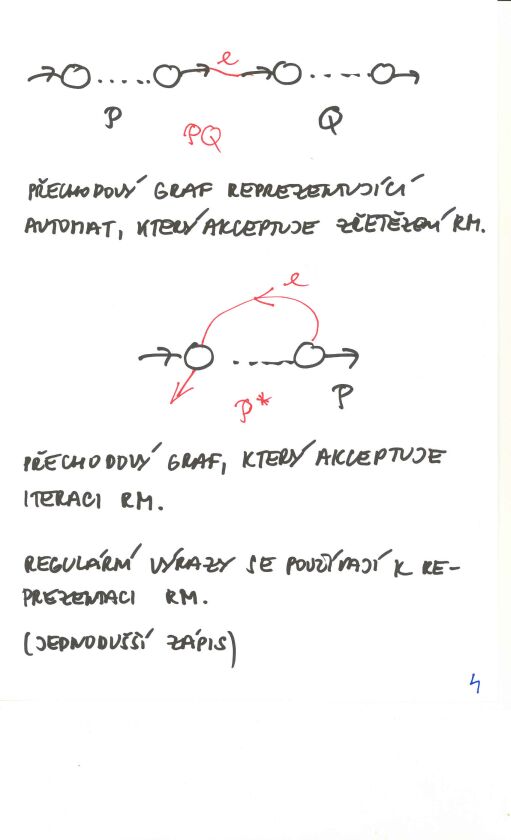 e
P
PQ
Q
PŘECHODOVÝ GRAF REPREZENTUJÍCÍ
AUTOMAT, KTERÝ AKCEPTUJE ZŘETĚZENÍ RM.
e
P*
P
PŘECHODOVÝ GRAF, KTERÝ AKCEPTUJE
ITERACI RM.
REGULÁRNÍ VÝRAZY SE POUŽÍVAJÍ K RE-
PREZENTACI RM.
(JEDNODUŠŠÍ ZÁPIS)
4